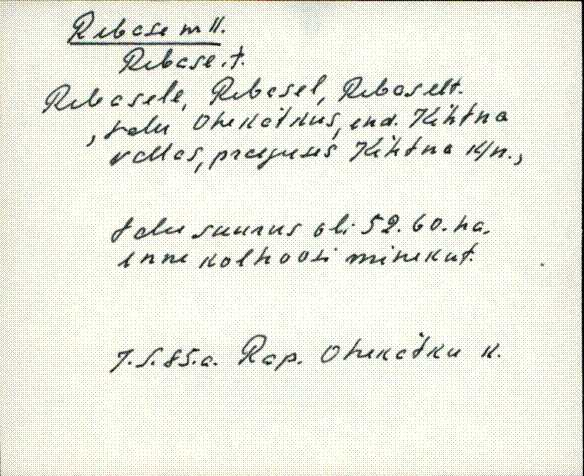 Rebase m II.
Rebase, t.
Rebasele, Rebasel, Rebaselt.
, talu Ohekätkus, end. Kehtna
vallas, praeguses Kehtna k/n.,
talu suurus oli 52.60. ha.
enne kolhoosi minekut.
7.5.85.a. Rap. Ohekätku k.